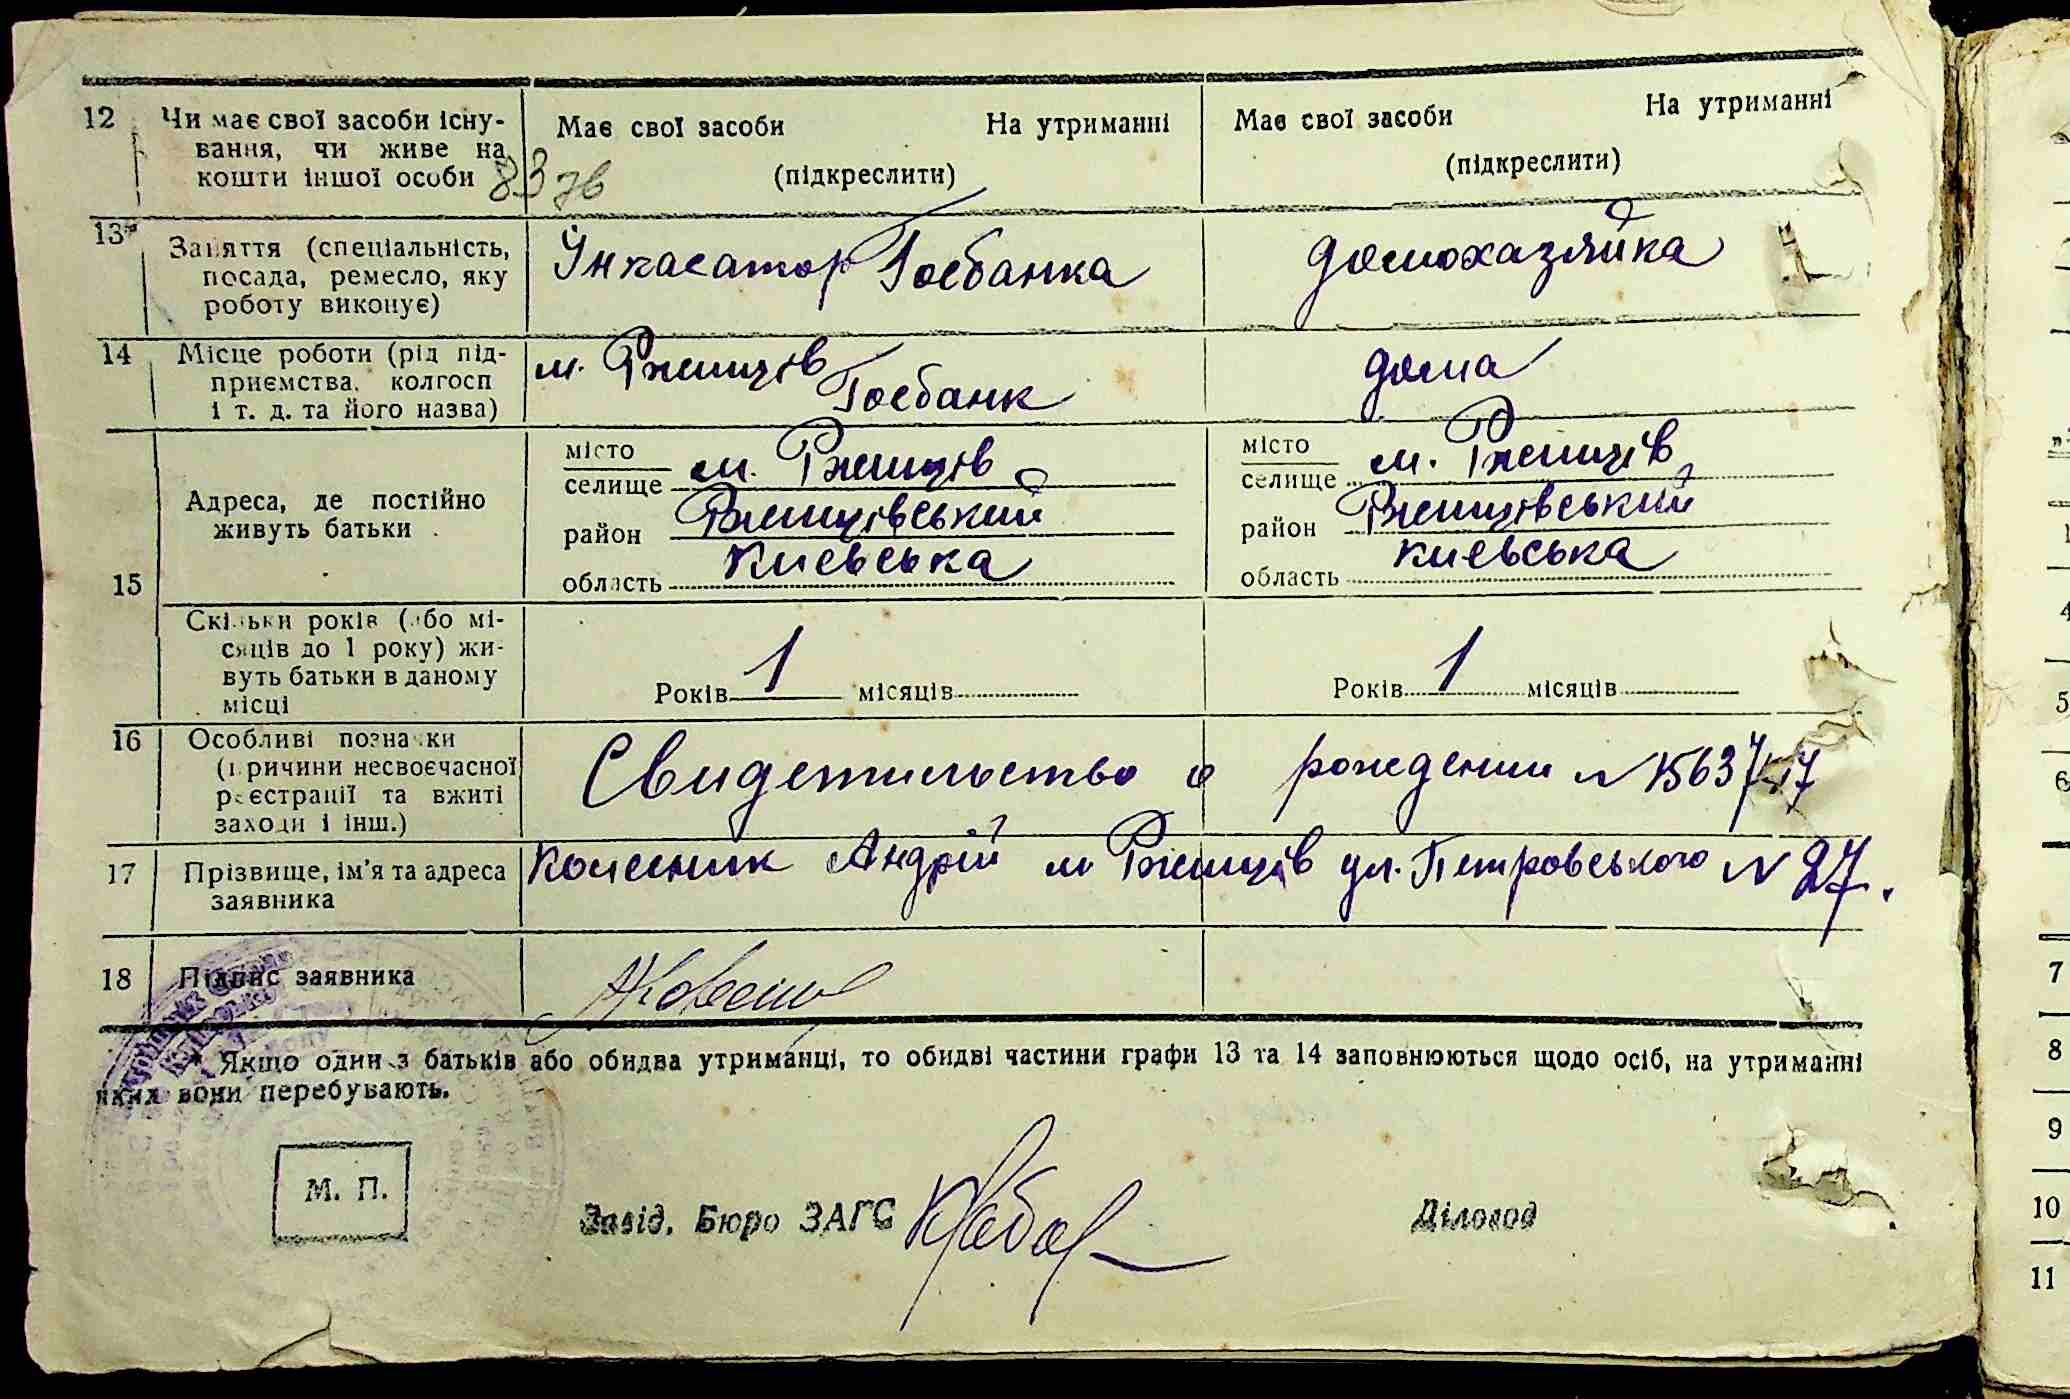 12 Чи має свої засоби існу-
вання, чи живе на
кошти іншої особи
Має свої засоби На утриманні
(підкреслити)
Має свої засоби На утриманні
(підкреслити)
13* Заняття (спеціальність,
посада, ремесло, яку
роботу виконує)
Інкасатор Госбанка
домохазяйка
14 Місце роботи (рід під-
приємства, колгосп
і т. д. та його назва)
м. Ржищів
Госбанк
дома
15
Адреса, де постійно
живуть батьки
місто
селище м. Ржищів
район Ржищівський
область Киевська
місто
селище м. Ржищів
район Ржищівський
область Киевська
Скільки років (або мі-
сяців до 1 року) жи-
вуть батьки в даному
місці
Років 1 місяців
Років 1 місяців
16 Особливі позначки
(причини несвоєчасної
реєстрації та вжиті
заходи і інш.)
Свидетильство о рождении №
17 Прізвище, ім'я та адреса
заявника
Колесник Андрій м Ржищів ул. Петровського № 27.
18 Підпис заявника
* Якщо один з батьків або обидва утриманці, то обидві частини графи 13 та 14 заповнюються щодо осіб, на утриманні
яких вони перебувають.
М. П.
Завід. Бюро ЗАГС
Діловод
4
5
6
7
8
9
10
11